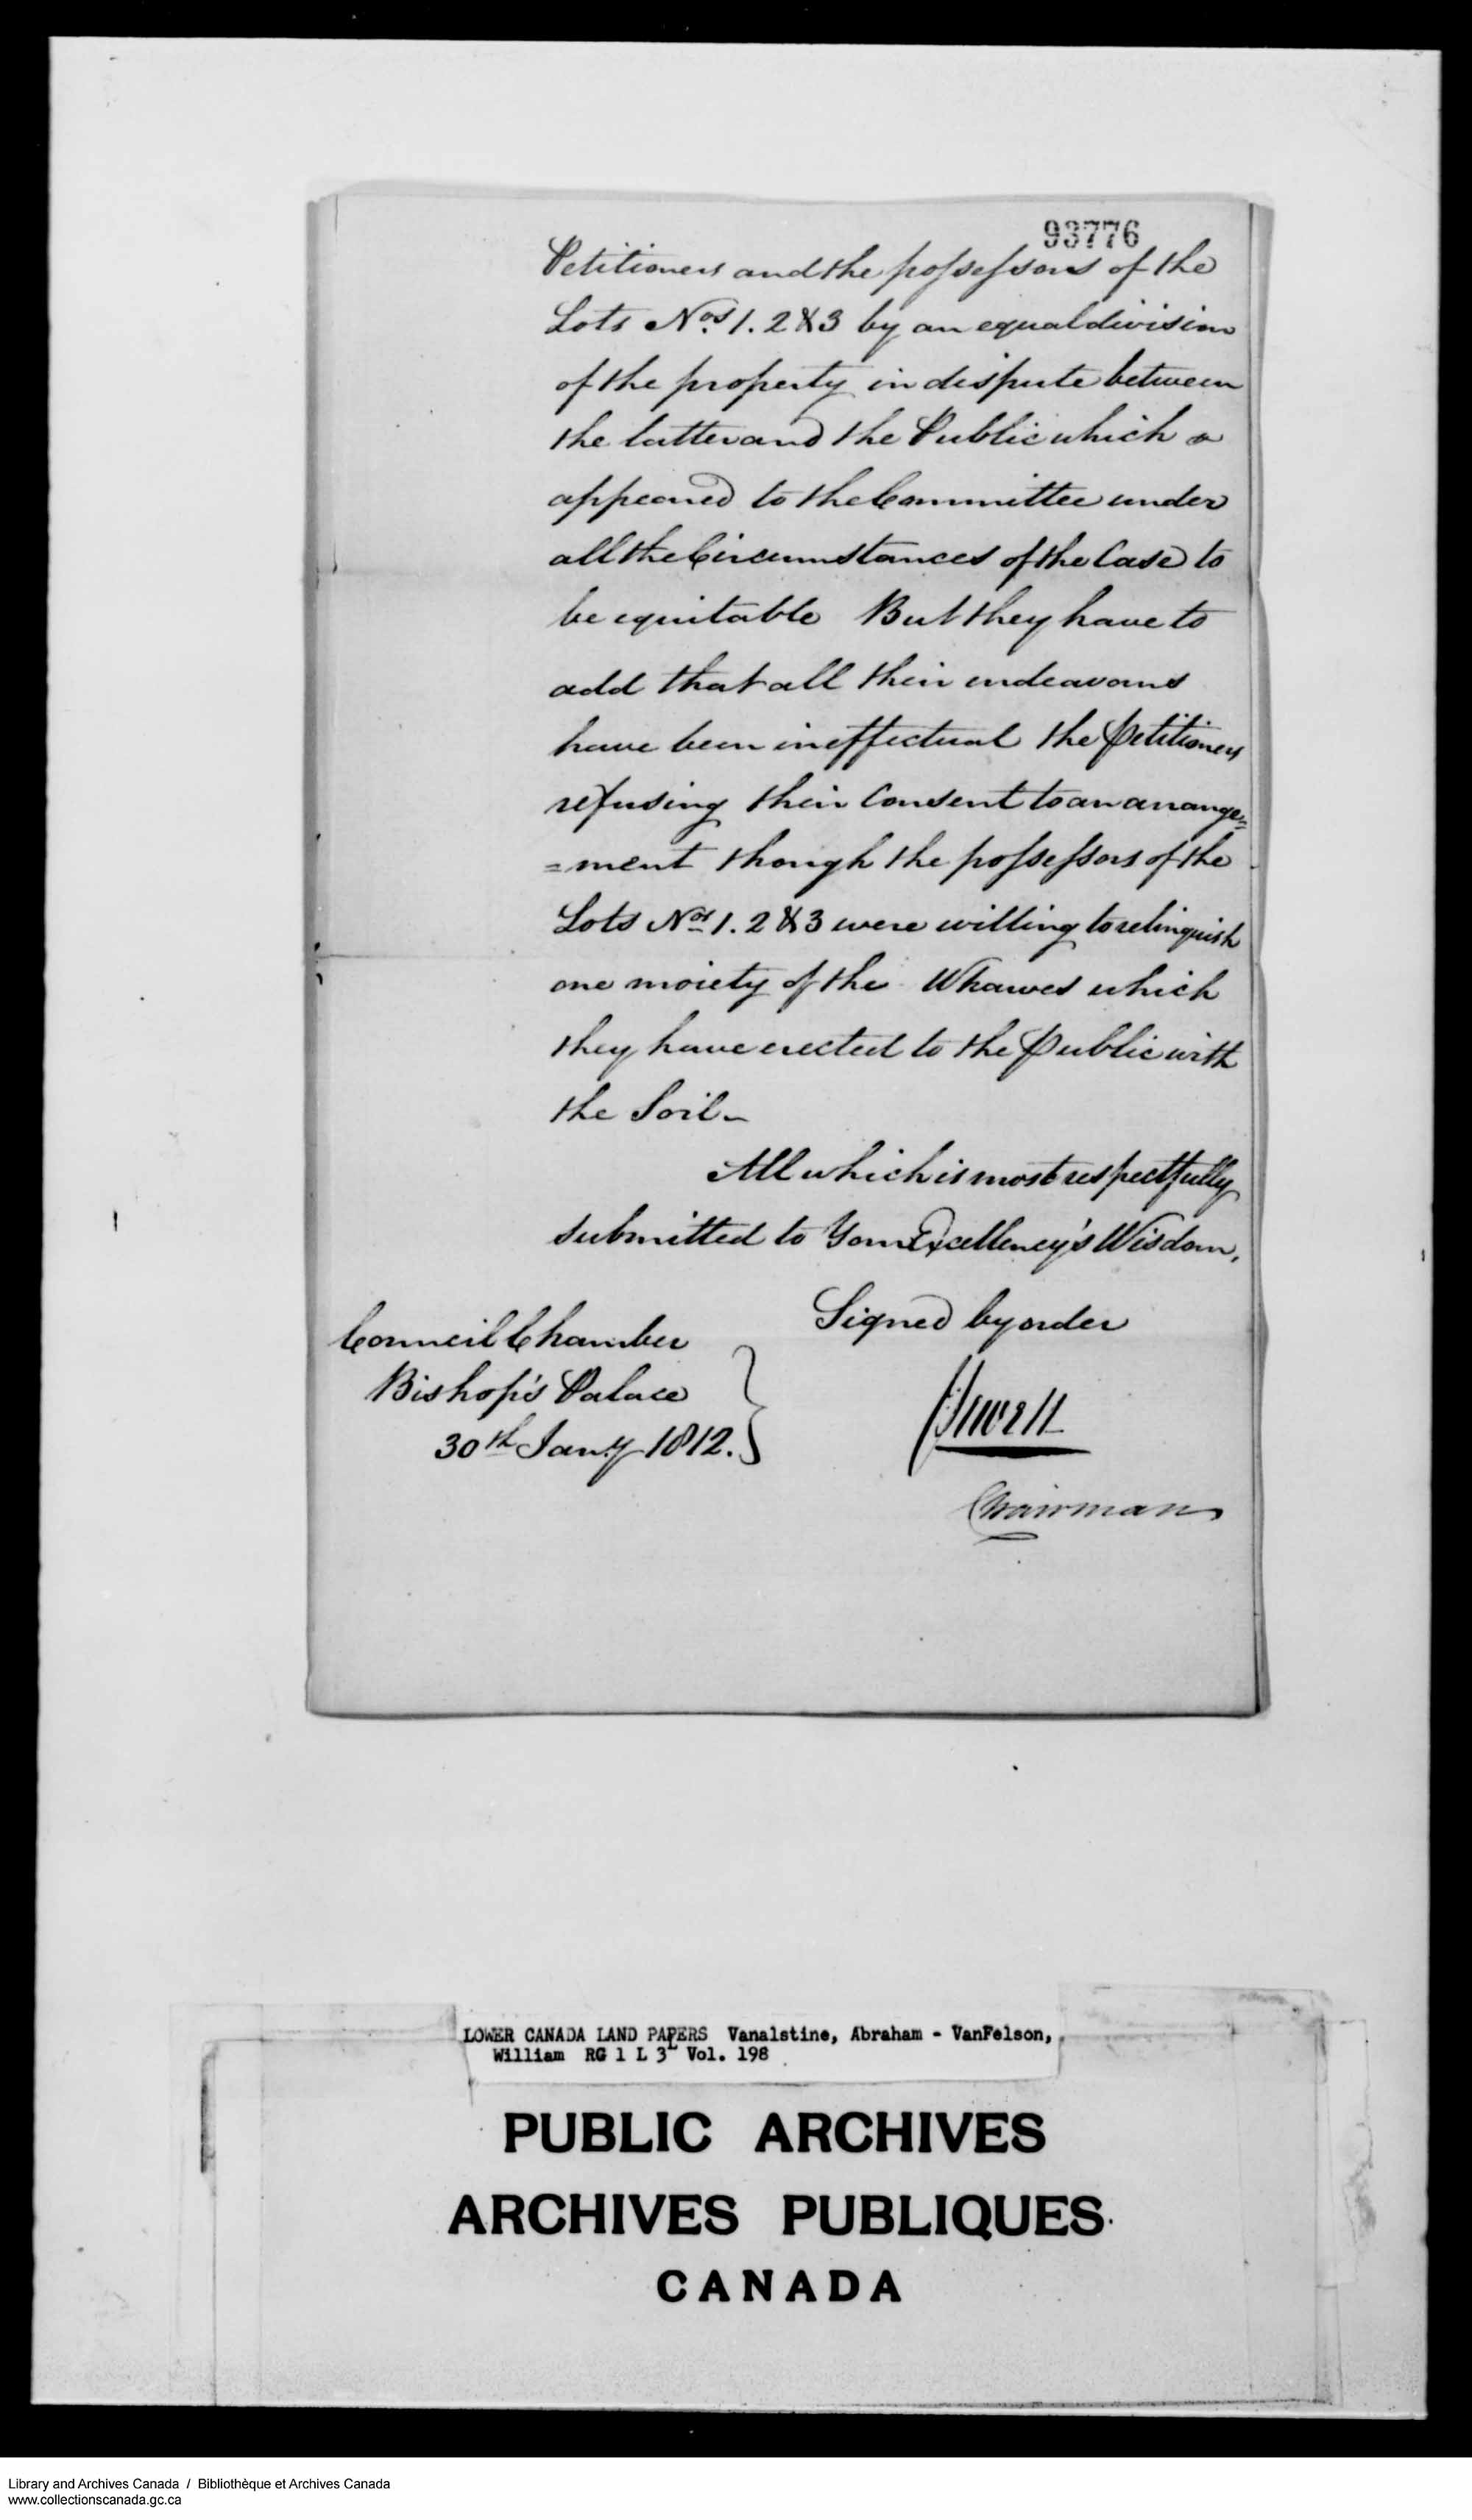 93776
Petitioners and the possessors of the
Lots Nos. 1. 2 & 3 by an equal division
of the property in dispute between
the latter and the Public which
appeared to the Committee under
all the Circumstances of the Case to
be equitable But they have to
add that all their endeavours
have been ineffectual the Petitioners
refusing their Consent to an arrange=
=ment though the possessors of the
Lots Nos 1. 2 & 3 were willing to relinquish
one moiety of the Wharves which
they have erected to the Public with
the Soil-
All which is most respectfully
submitted to Your Excellency's Wisdom,
Signed by order
Council Chamber
Bishop's Palace
30th Jany. 1812.
Sewell
Chairman
LOWER CANADA LAND PAPERS Vanalstine, Abraham - VanFelson,
William RG 1 L 3L Vol. 198
PUBLIC ARCHIVES
ARCHIVES PUBLIQUES
CANADA
Library and Archives Canada / Bibliothèque et Archives Canada
www.collectionscanada.gc.ca